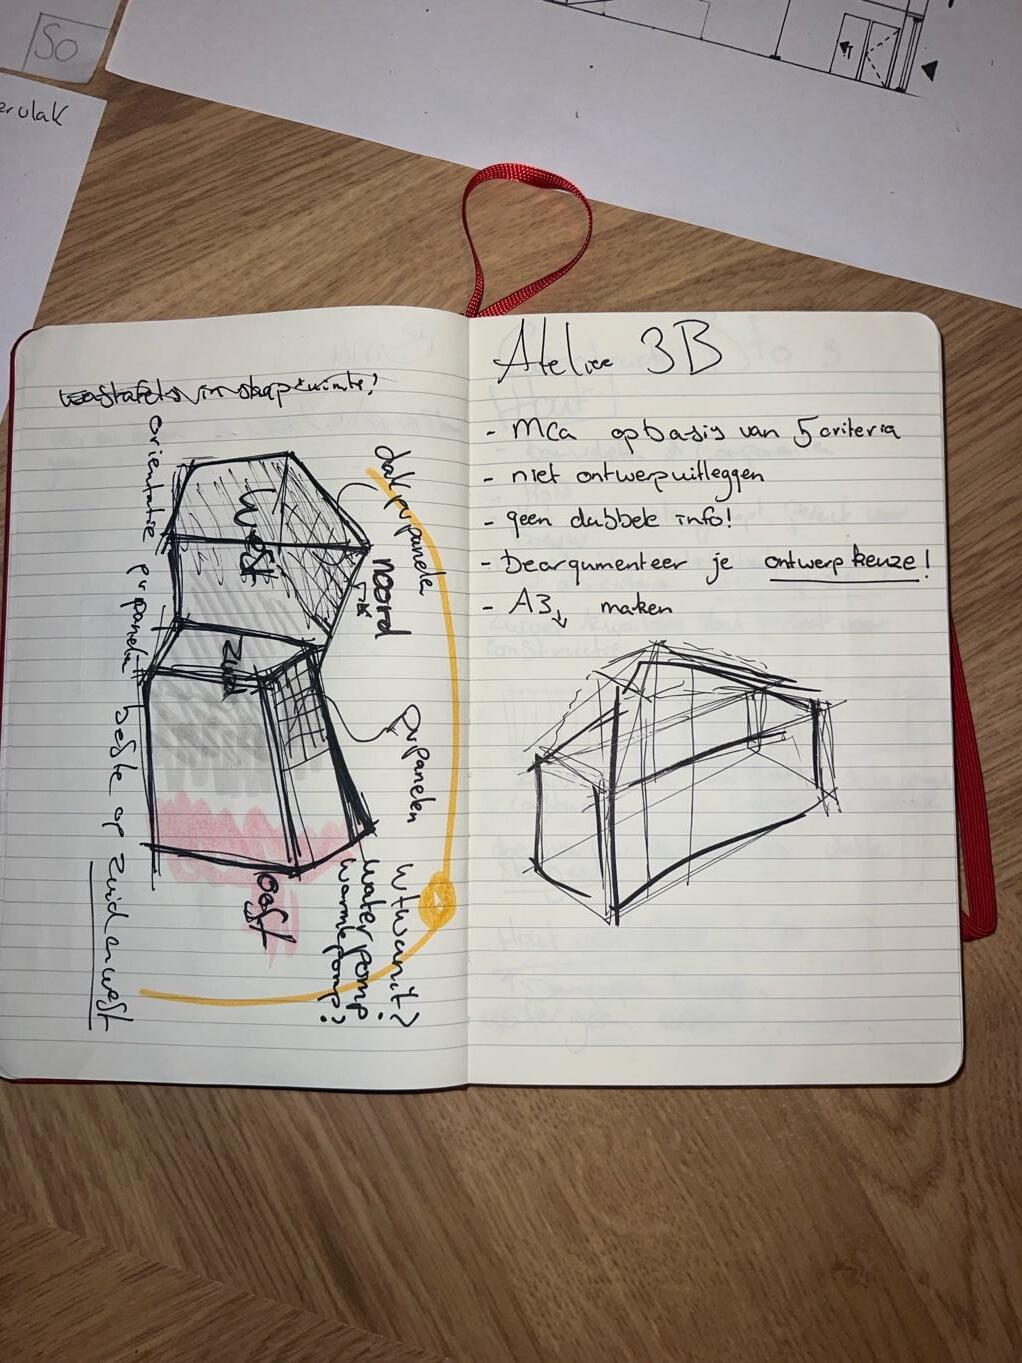 So
wastafels in stap ruimte?
orientatie pv panelen beste op zuid en west
dak pv panelen
west
noord
zuid
pv panelen
oost
wtw unit?
waterpomp
warmtepomp?
Atelier 3B
- MCa op basis van 5 criteria
- niet ontwerp uitleggen
- geen dubbele info!
- Beargumenteer je ontwerp keuze!
- A3↓ maken